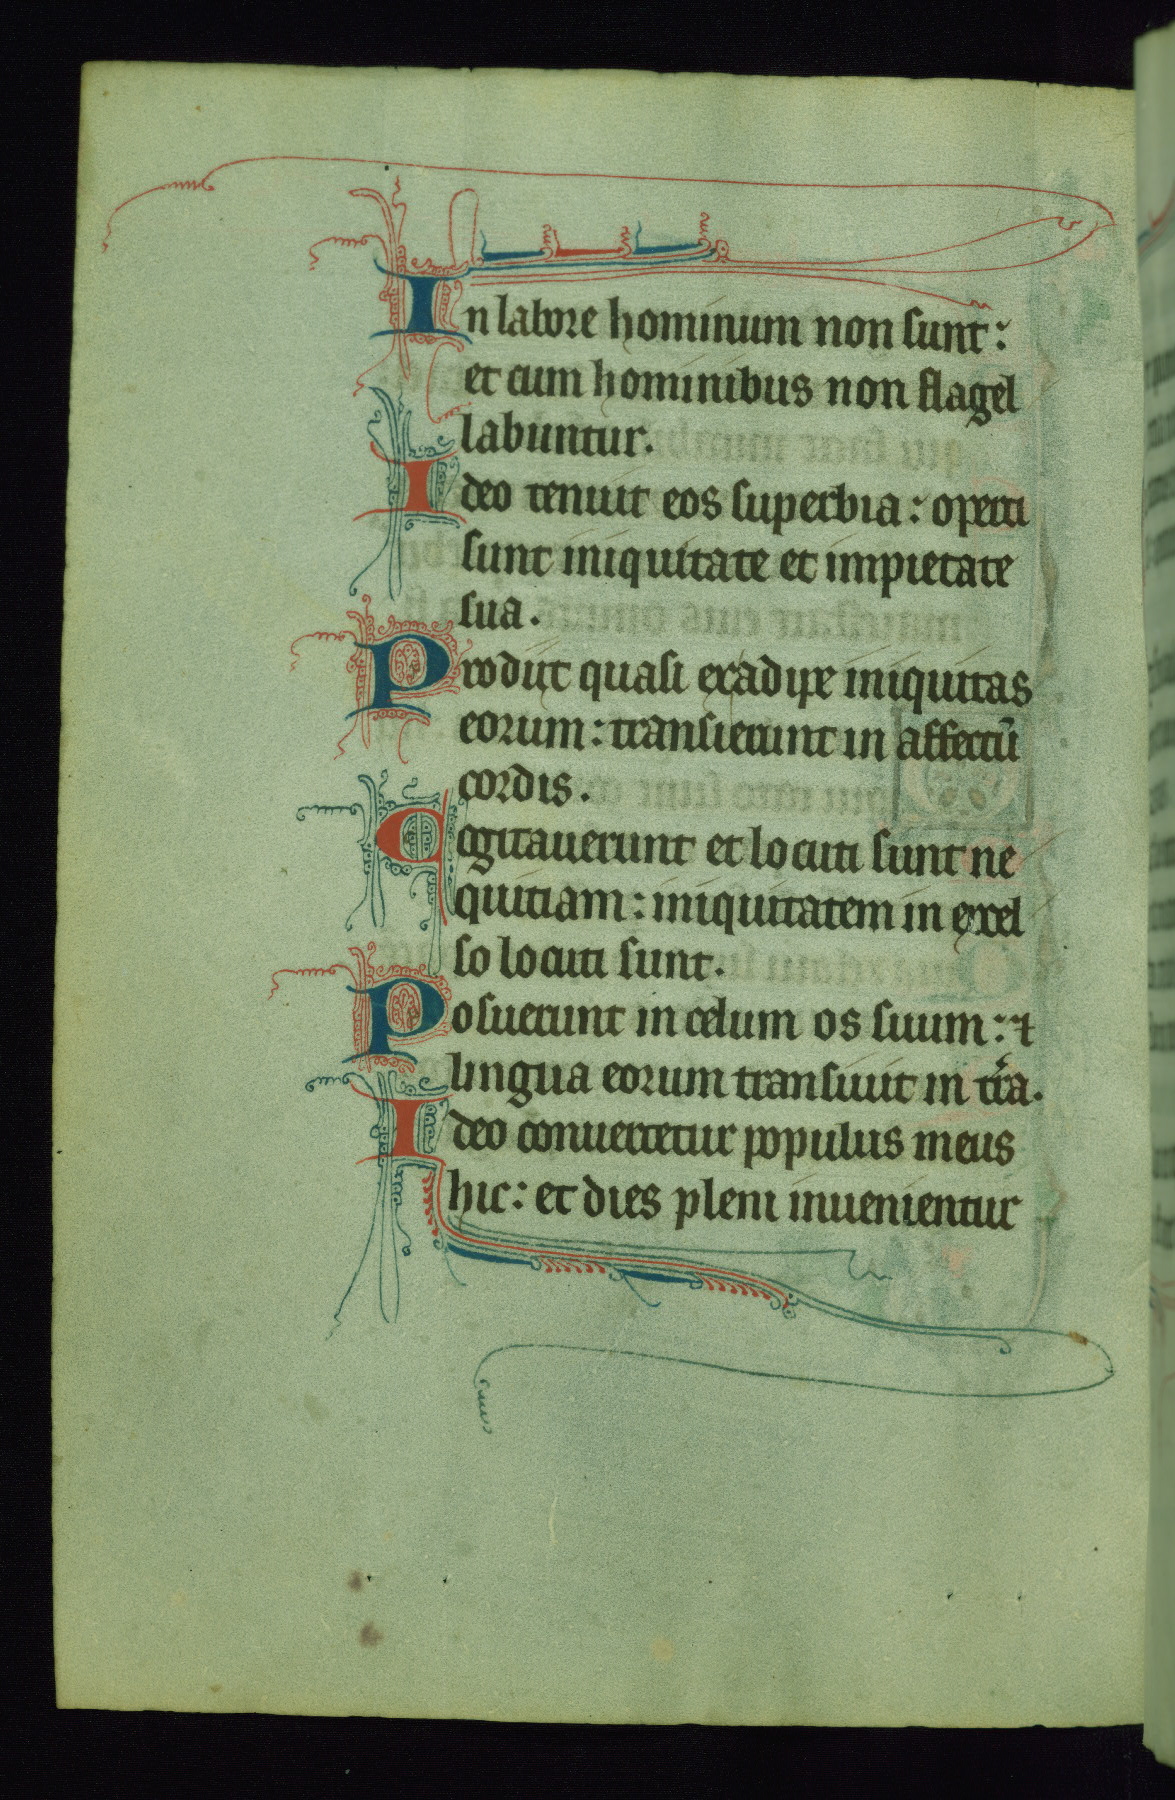 In labore hominum non sunt:
et cum hominibus non flagel
labuntur.
Ideo tenuit eos superbia: operti
sunt iniquitate et impietate
sua.
Prodiit quasi exadipe iniquitas
eorum: transierunt in affectū
cordis.
Cogitauerunt et locuti sunt ne
quitiam: iniquitatem in excel
so locuti sunt.
Posuerunt in celum os suum: ⁊
lingua eorum transiuit in tr̄a.
Ideo conuertetur populus meus
hic: et dies pleni inuenientur